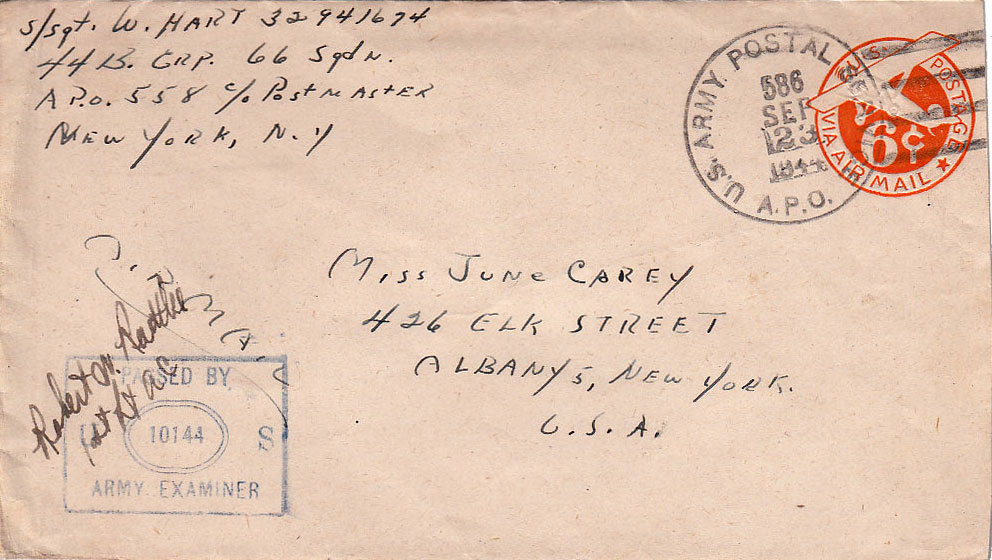 S/Sgt. W. HART 32941674
44 B. GRP. 66 Sqdn.
A.P.O. 558 c/o POSTMASTER
NEW YORK, N.Y
U.S. ARMY POSTAL SERVICE
A.P.O.
586
SEP
23
1944
U.S. POSTAGE
6¢
VIA AIR MAIL
MISS JUNE CAREY
426 ELK STREET
ALBANY 5, NEW YORK.
U.S.A.
Robert
1st Lt AC
PASSED BY
U S
10144
ARMY EXAMINER